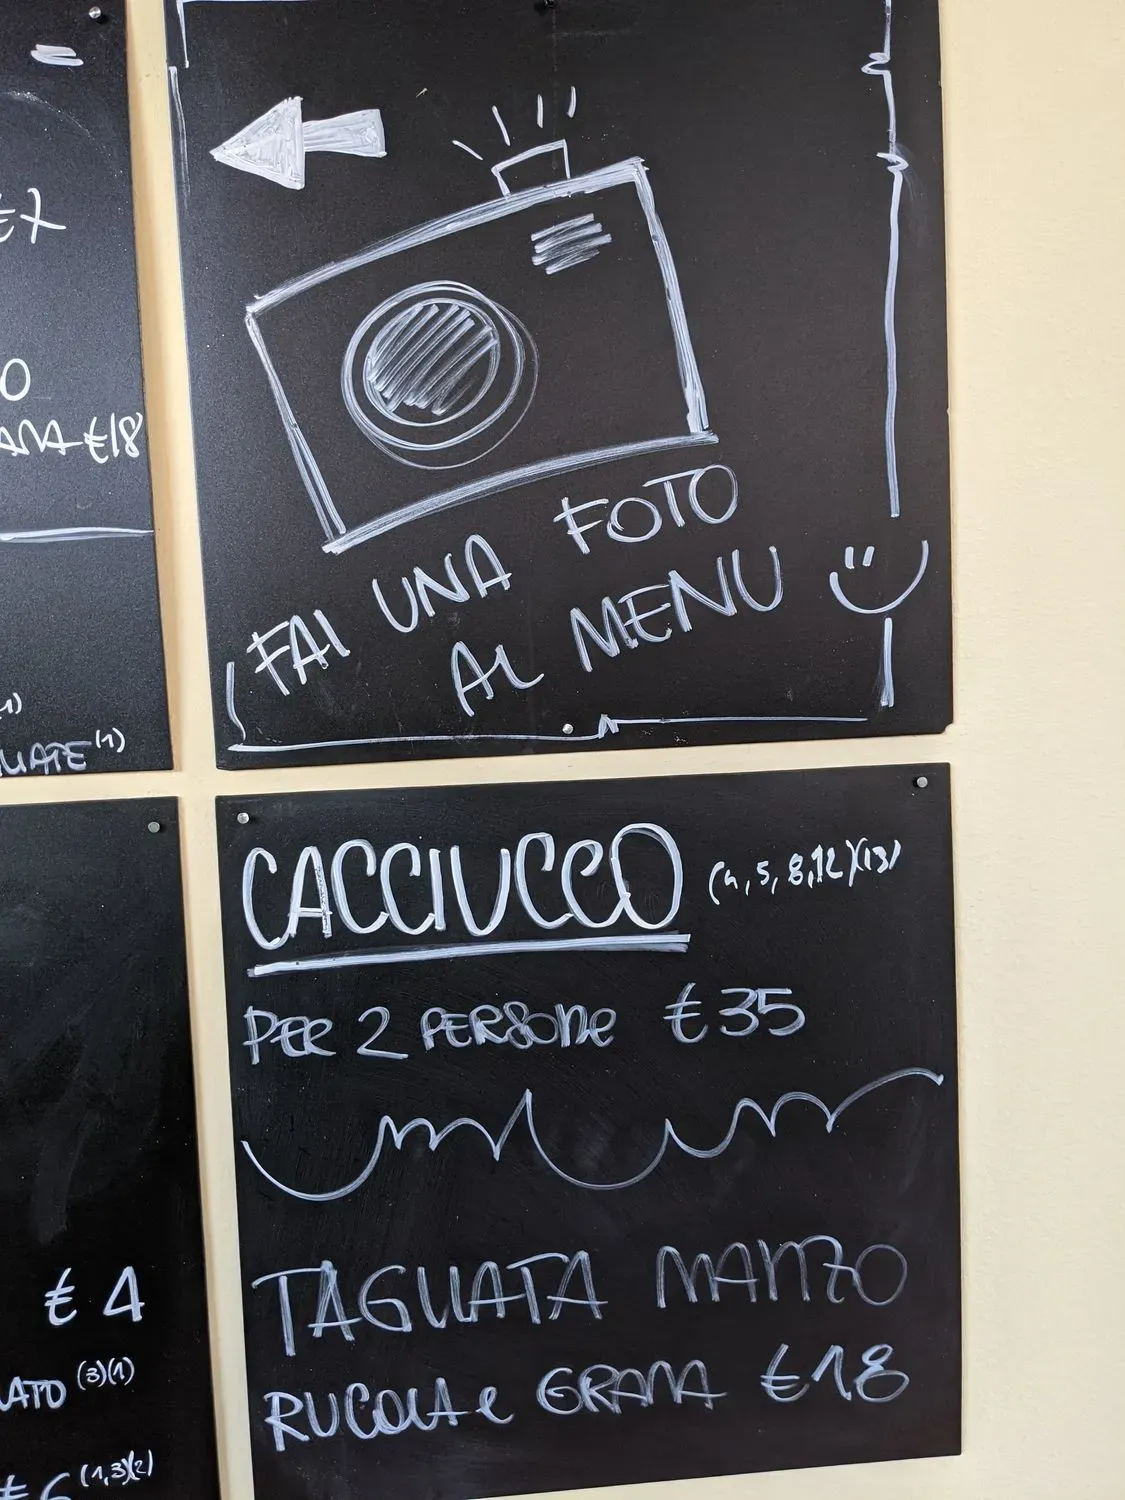 €18
(1)
(1)
FAI UNA FOTO
AL MENU
CACCIUCCO (4, 5, 8, 12)(13)
PER 2 PERSONE €35
TAGLIATA MANZO
RUCOLA e GRANA €18
€ 4
(3)(1)
€ 6 (1,3)(2)